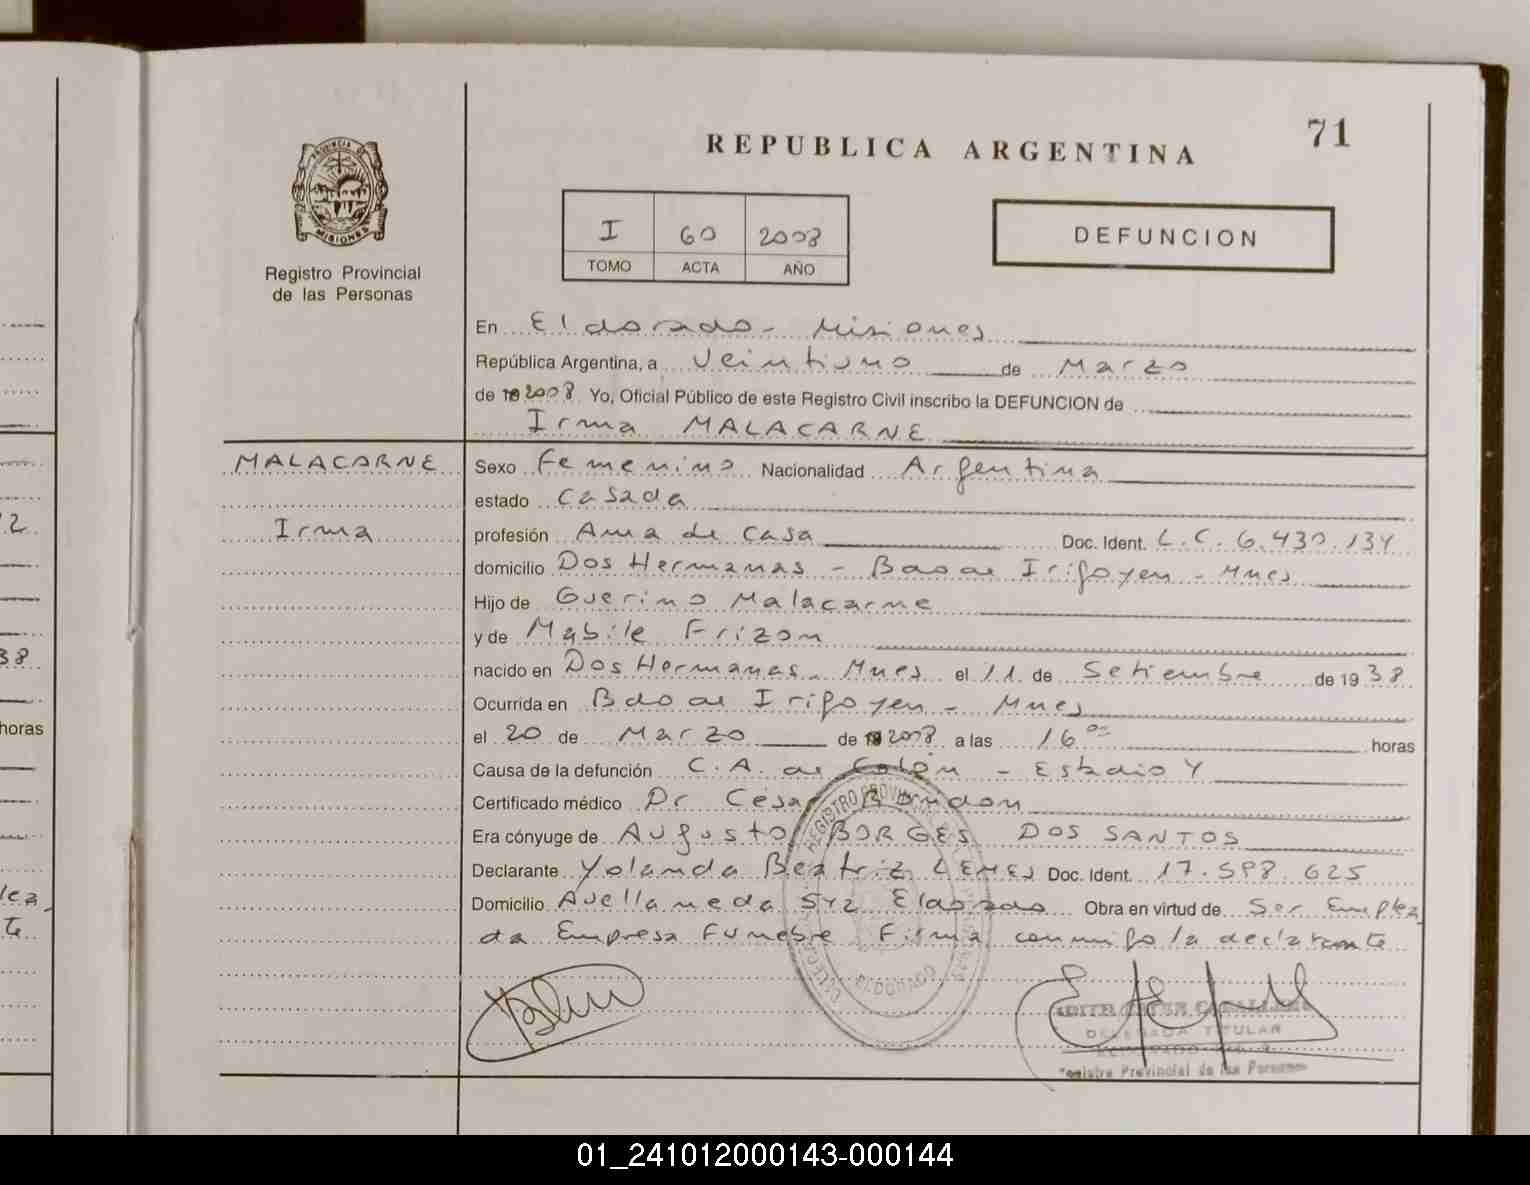 71
REPUBLICA ARGENTINA
PROVINCIA DE
MISIONES
Registro Provincial
de las Personas
I 60 2008
TOMO ACTA AÑO
DEFUNCION
En Eldorado - Misiones
República Argentina, a Veintiuno de Marzo
de 2008 Yo, Oficial Público de este Registro Civil inscribo la DEFUNCION de
Irma MALACARNE
MALACARNE
Irma
Sexo Femenino Nacionalidad Argentina
estado Casada
profesión Ama de Casa Doc. Ident. L.C. 6.430.134
domicilio Dos Hermanas - Bdo de Irigoyen - Mnes
Hijo de Guerino Malacarne
y de Mabile Frizon
nacido en Dos Hermanas - Mnes el 11 de Setiembre de 1938
Ocurrida en Bdo de Irigoyen - Mnes
el 20 de Marzo de 2008 a las 16 00 horas
Causa de la defunción C.A. de Colon - Estadio Y
Certificado médico Dr Cesar
Era cónyuge de Augusto BORGES DOS SANTOS
Declarante Yolanda Beatriz LEMES Doc. Ident. 17.598.625
Domicilio Avellaneda 542 Eldorado Obra en virtud de Ser Emplea
da Empresa Funebre Firma conmigo la declarante
REGISTRO PROVINCIAL
ELDORADO
DELEGADA TITULAR
Registro Provincial de las Personas
2
38
horas
lea
te
01_241012000143-000144